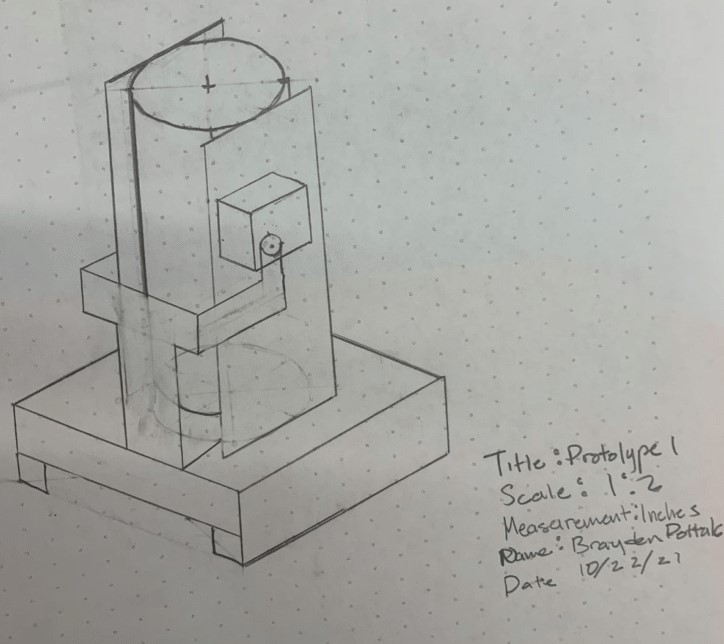 Title: Prototype 1
Scale: 1:2
Measurement: Inches
Name: Brayden
Date 10/22/21